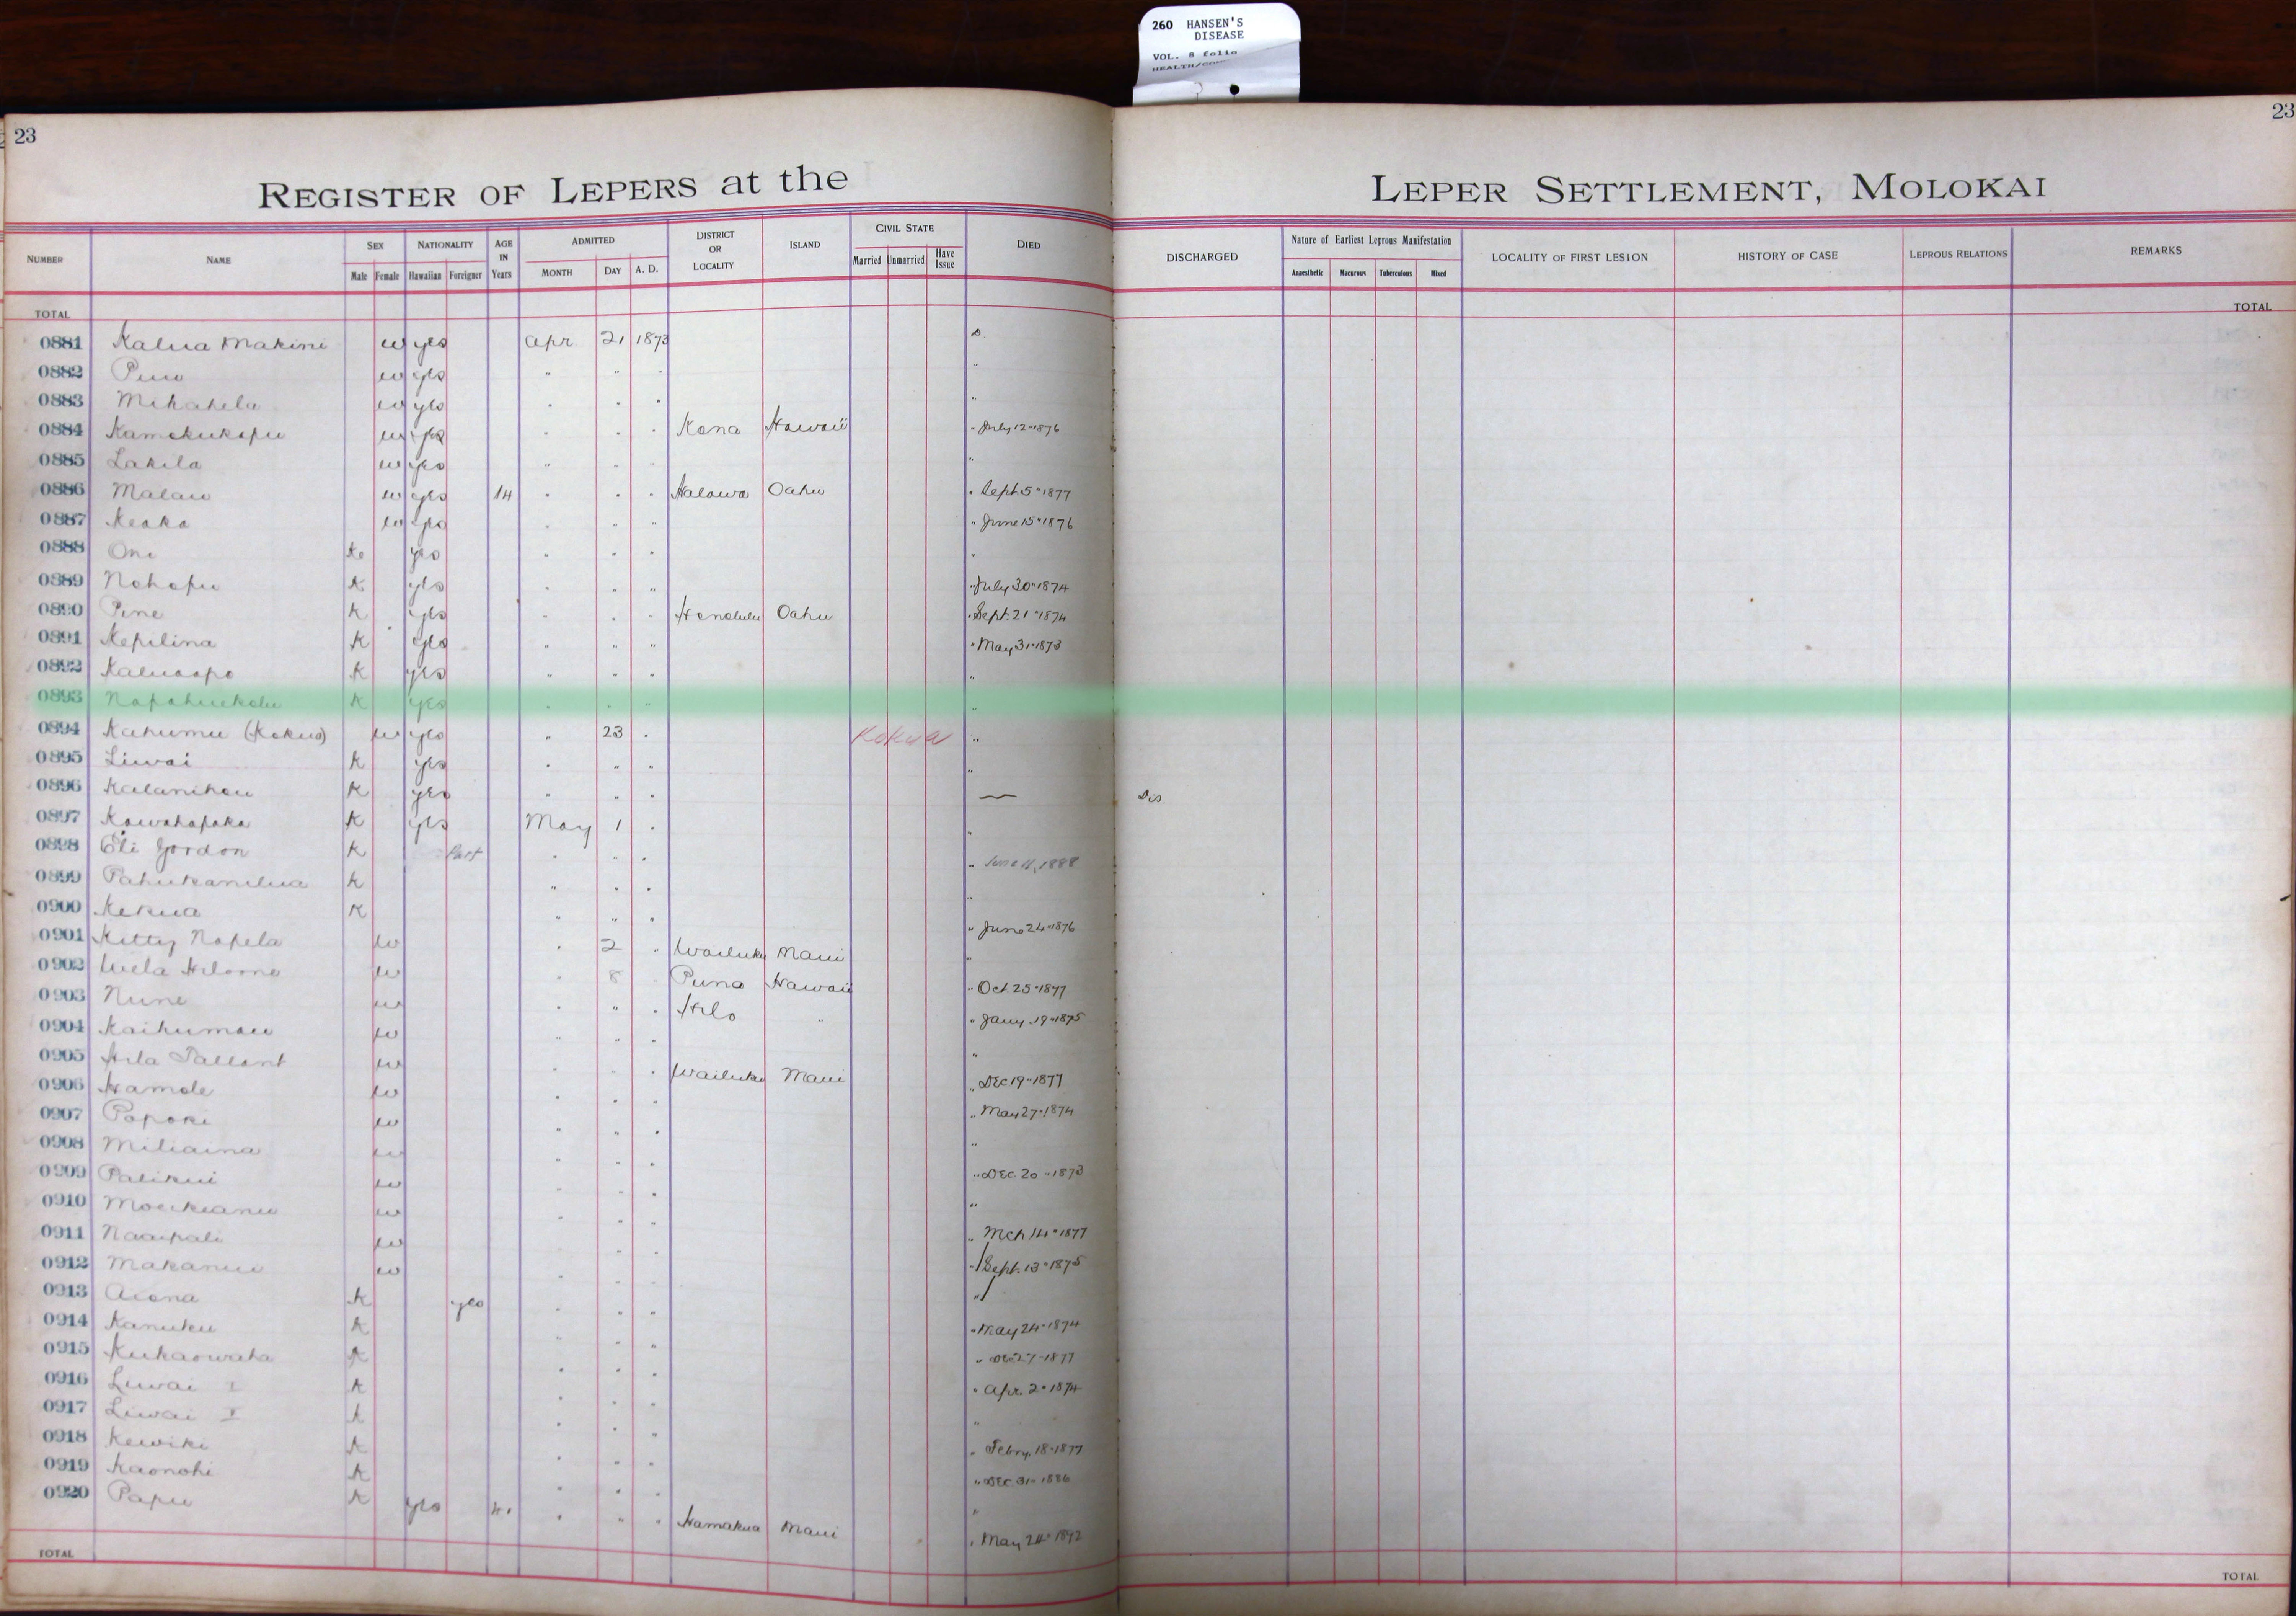 260 HANSEN'S
DISEASE
VOL. 8 folio
23
23
REGISTER OF LEPERS at the LEPER SETTLEMENT, MOLOKAI
NUMBER NAME SEX NATIONALITY AGE IN Years ADMITTED DISTRICT OR LOCALITY ISLAND CIVIL STATE DIED DISCHARGED Nature of Earliest Leprous Manifestation LOCALITY OF FIRST LESION HISTORY OF CASE LEPROUS RELATIONS REMARKS
Male Female Hawaiian Foreigner MONTH DAY A. D. Married Unmarried Have Issue Anaesthetic Macurous Tuberculous Mixed
TOTAL TOTAL
0881 Kalua Makini w yes Apr 21 1873 D.
0882 w yes " " " "
0883 Mikahela w yes " " " "
0884 Kamokukapu w yes " " " Kona Hawaii " July 12 " 1876
0885 Lakila w yes " " " "
0886 Malau w yes 14 " " " Halawa Oahu " Sept. 5 " 1877
0887 Keaka w yes " " " " June 15 " 1876
0888 Oni K yes " " " "
0889 Nohopu K yes " " " " July 30 " 1874
0890 Pine K yes " " " Honolulu Oahu " Sept. 21 " 1874
0891 Kepilina K yes " " " " May 31 " 1873
0892 Kaluaapo K yes " " " "
0893 Napahuekolu K yes " " " "
0894 Kahumu (Kokua) w yes " 23 " Kokua "
0895 Liwai K yes " " " "
0896 Kalanihou K yes " " " — Dis
0897 Kawahapaka K yes May 1 " "
0898 Eli Gordon K Part " " " " June 11, 1888
0899 Pahukanilua K " " " "
0900 Kekua K " " " " June 24 " 1876
0901 Kitty Napela w " 2 " Wailuku Maui "
0902 w " 8 Puna Hawaii " Oct. 25 " 1877
0903 Nune w " " " Hilo " " Jany. 19 " 1875
0904 Kaihumau w " " " "
0905 Hila Tallant w " " " Wailuku Maui " Dec 19 " 1877
0906 Hamole w " " " " May 27 " 1874
0907 Papoki w " " " "
0908 Miliaina w " " " " Dec. 20 " 1873
0909 Palikui w " " " "
0910 Moeikeanu w " " " " Mch 14 " 1877
0911 Naaipali w " " " " Sept. 13 " 1875
0912 Makanui w " " " "
0913 Aiona K yes " " " " May 24 " 1874
0914 Kanuku K " " " " Dec 27 " 1877
0915 Kukaowaha K " " " " Apr. 2 " 1874
0916 Liwai I K " " " "
0917 Liwai K " " " " Febry. 18 " 1877
0918 Kewiki K " " " " Dec. 31 " 1886
0919 Kaonohi K " " " "
0920 Papu K yes " " " Hamakua Maui " May 24 " 1892
TOTAL TOTAL